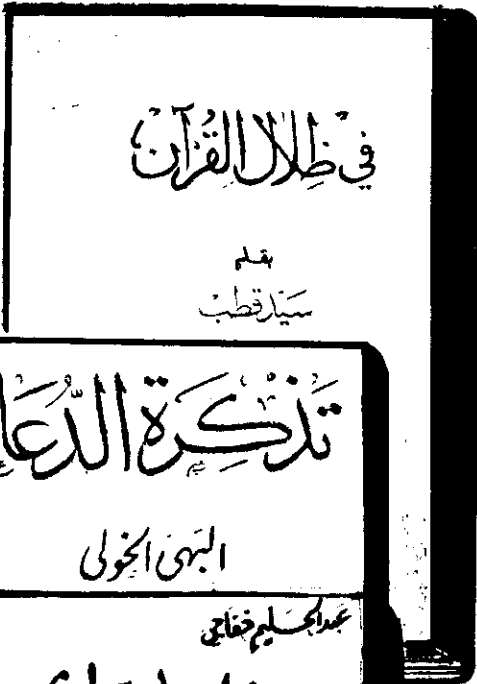 في ظِلَالِ القُرْآنِ
بقلم
سَيّد قطب
تَذْكِرَة الدُّعَا
البهى الخولى
عبد الحليم خفاجي